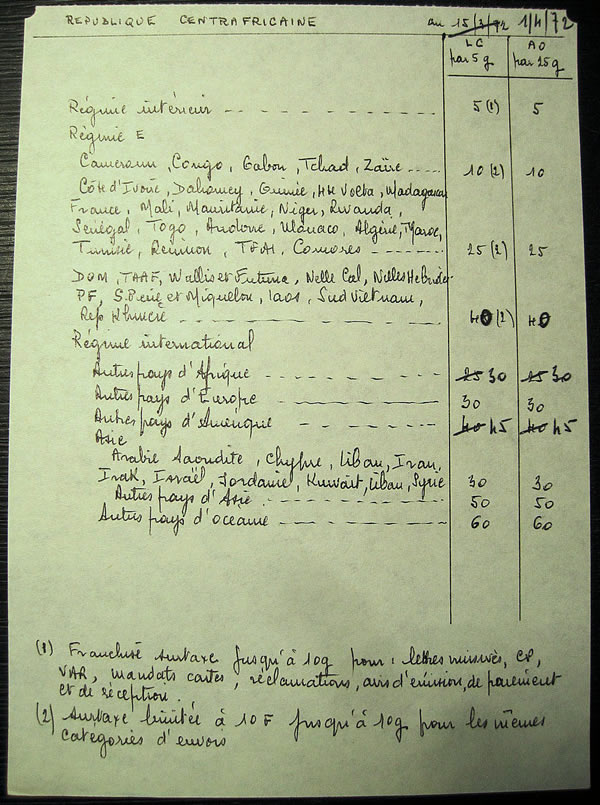 REPUBLIQUE CENTRAFRICAINE au 15/3/72 1/4/72
LC AO
par 5 g par 25 g
Régime intérieur 5 (1) 5
Régime E
Cameroun, Congo, Gabon, Tchad, Zaïre 10 (2) 10
Côte d'Ivoire, Dahomey, Guinée, Hte Volta, Madagascar
France, Mali, Mauritanie, Niger, Rwanda,
Sénégal, Togo, Andorre, Monaco, Algérie, Maroc,
Tunisie, Réunion, TFAI, Comores 25 (2) 25
DOM, TAAF, Wallis et Futuna, Nelle Cal, Nelles Hebrides
PF, S. Pierre et Miquelon, Laos, Sud Vietnam,
Rép Khmère 40 (2) 40
Régime international
Autres pays d'Afrique 25 30 25 30
Autres pays d'Europe 30 30
Autres pays d'Amérique 40 45 40 45
Asie
Arabie Saoudite, Chypre, Liban, Iran,
Irak, Israël, Jordanie, Kuwait, Liban, Syrie 30 30
Autres pays d'Asie 50 50
Autres pays d'océanie 60 60
(1) Franchise surtaxe jusqu'à 10g pour : lettres missives, CP,
VAR, mandats cartes, réclamations, avis d'émission, de paiement
et de réception.
(2) Surtaxe limitée à 10 F jusqu'à 10g pour les mêmes
catégories d'envois